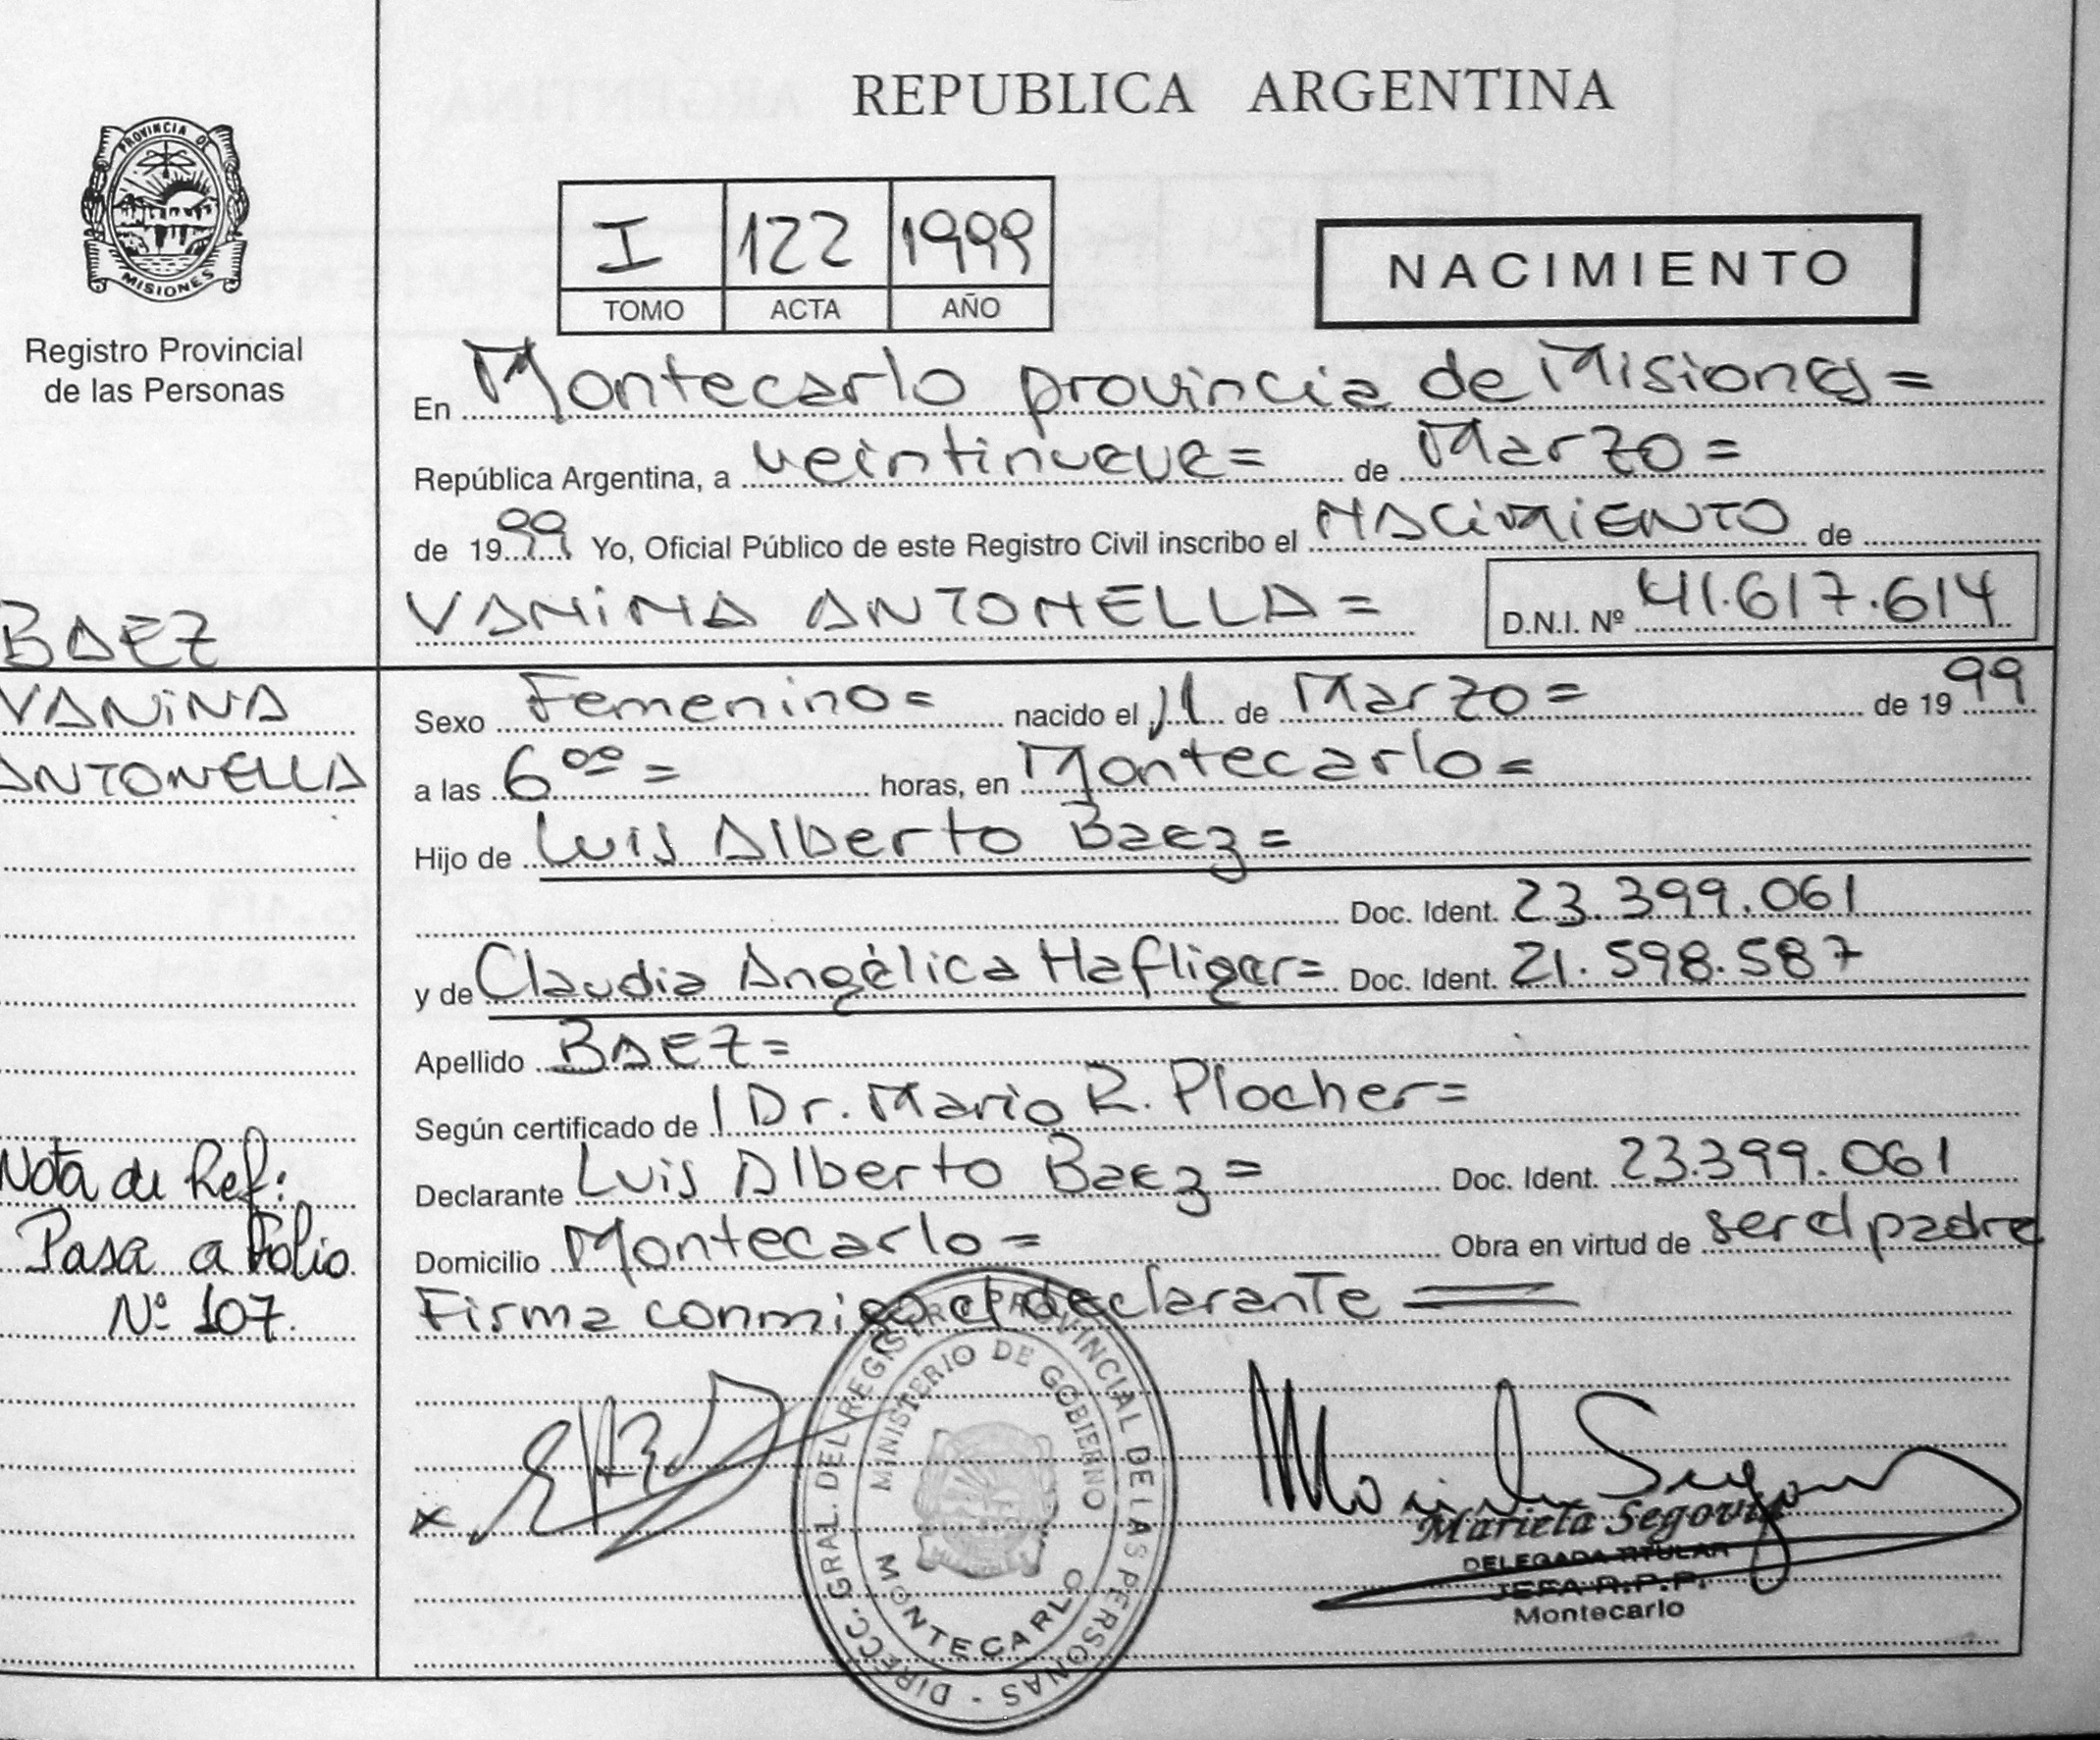 REPUBLICA ARGENTINA
PROVINCIA DE
MISIONES
Registro Provincial
de las Personas
I 122 1999
TOMO ACTA AÑO
NACIMIENTO
En Montecarlo provincia de Misiones=
República Argentina, a veintinueve= de Marzo=
de 1999 Yo, Oficial Público de este Registro Civil inscribo el NACIMIENTO de
VANINA ANTONELLA= D.N.I. Nº 41.617.614
BAEZ
VANINA
ANTONELLA
Sexo Femenino= nacido el 11 de Marzo= de 1999
a las 6 00= horas, en Montecarlo=
Hijo de Luis Alberto Baez=
Doc. Ident. 23.399.061
y de Claudia Angélica Hafliger= Doc. Ident. 21.598.587
Apellido BAEZ=
Según certificado de l Dr. Mario R. Plocher=
Declarante Luis Alberto Baez= Doc. Ident. 23.399.061
Domicilio Montecarlo= Obra en virtud de ser el padre
Firma conmigo el declarante =
Nota de Ref:
Pasa a Folio
Nº 107.
DIRECC. GRAL. DEL REGISTRO PROVINCIAL DE LAS PERSONAS -
MINISTERIO DE GOBIERNO
MONTECARLO
Mariela Segovia
DELEGADA TITULAR
JEFA R.P.P.
Montecarlo